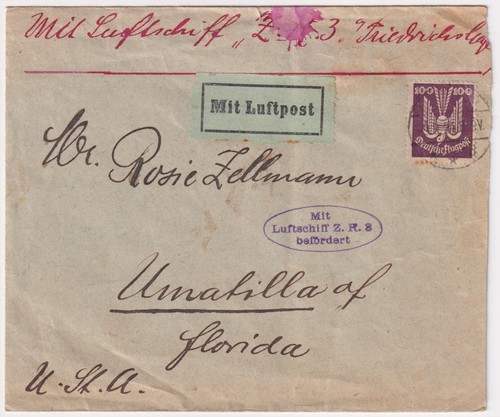 Mit Luftschiff „Z 3" Friedrichshafen
Mit Luftpost
100 100
Deutsche Flugpost
Mr. Rosie Zellmann
Mit
Luftschiff Z. R. 3
befördert
Umatilla of
Florida
U. St. A.